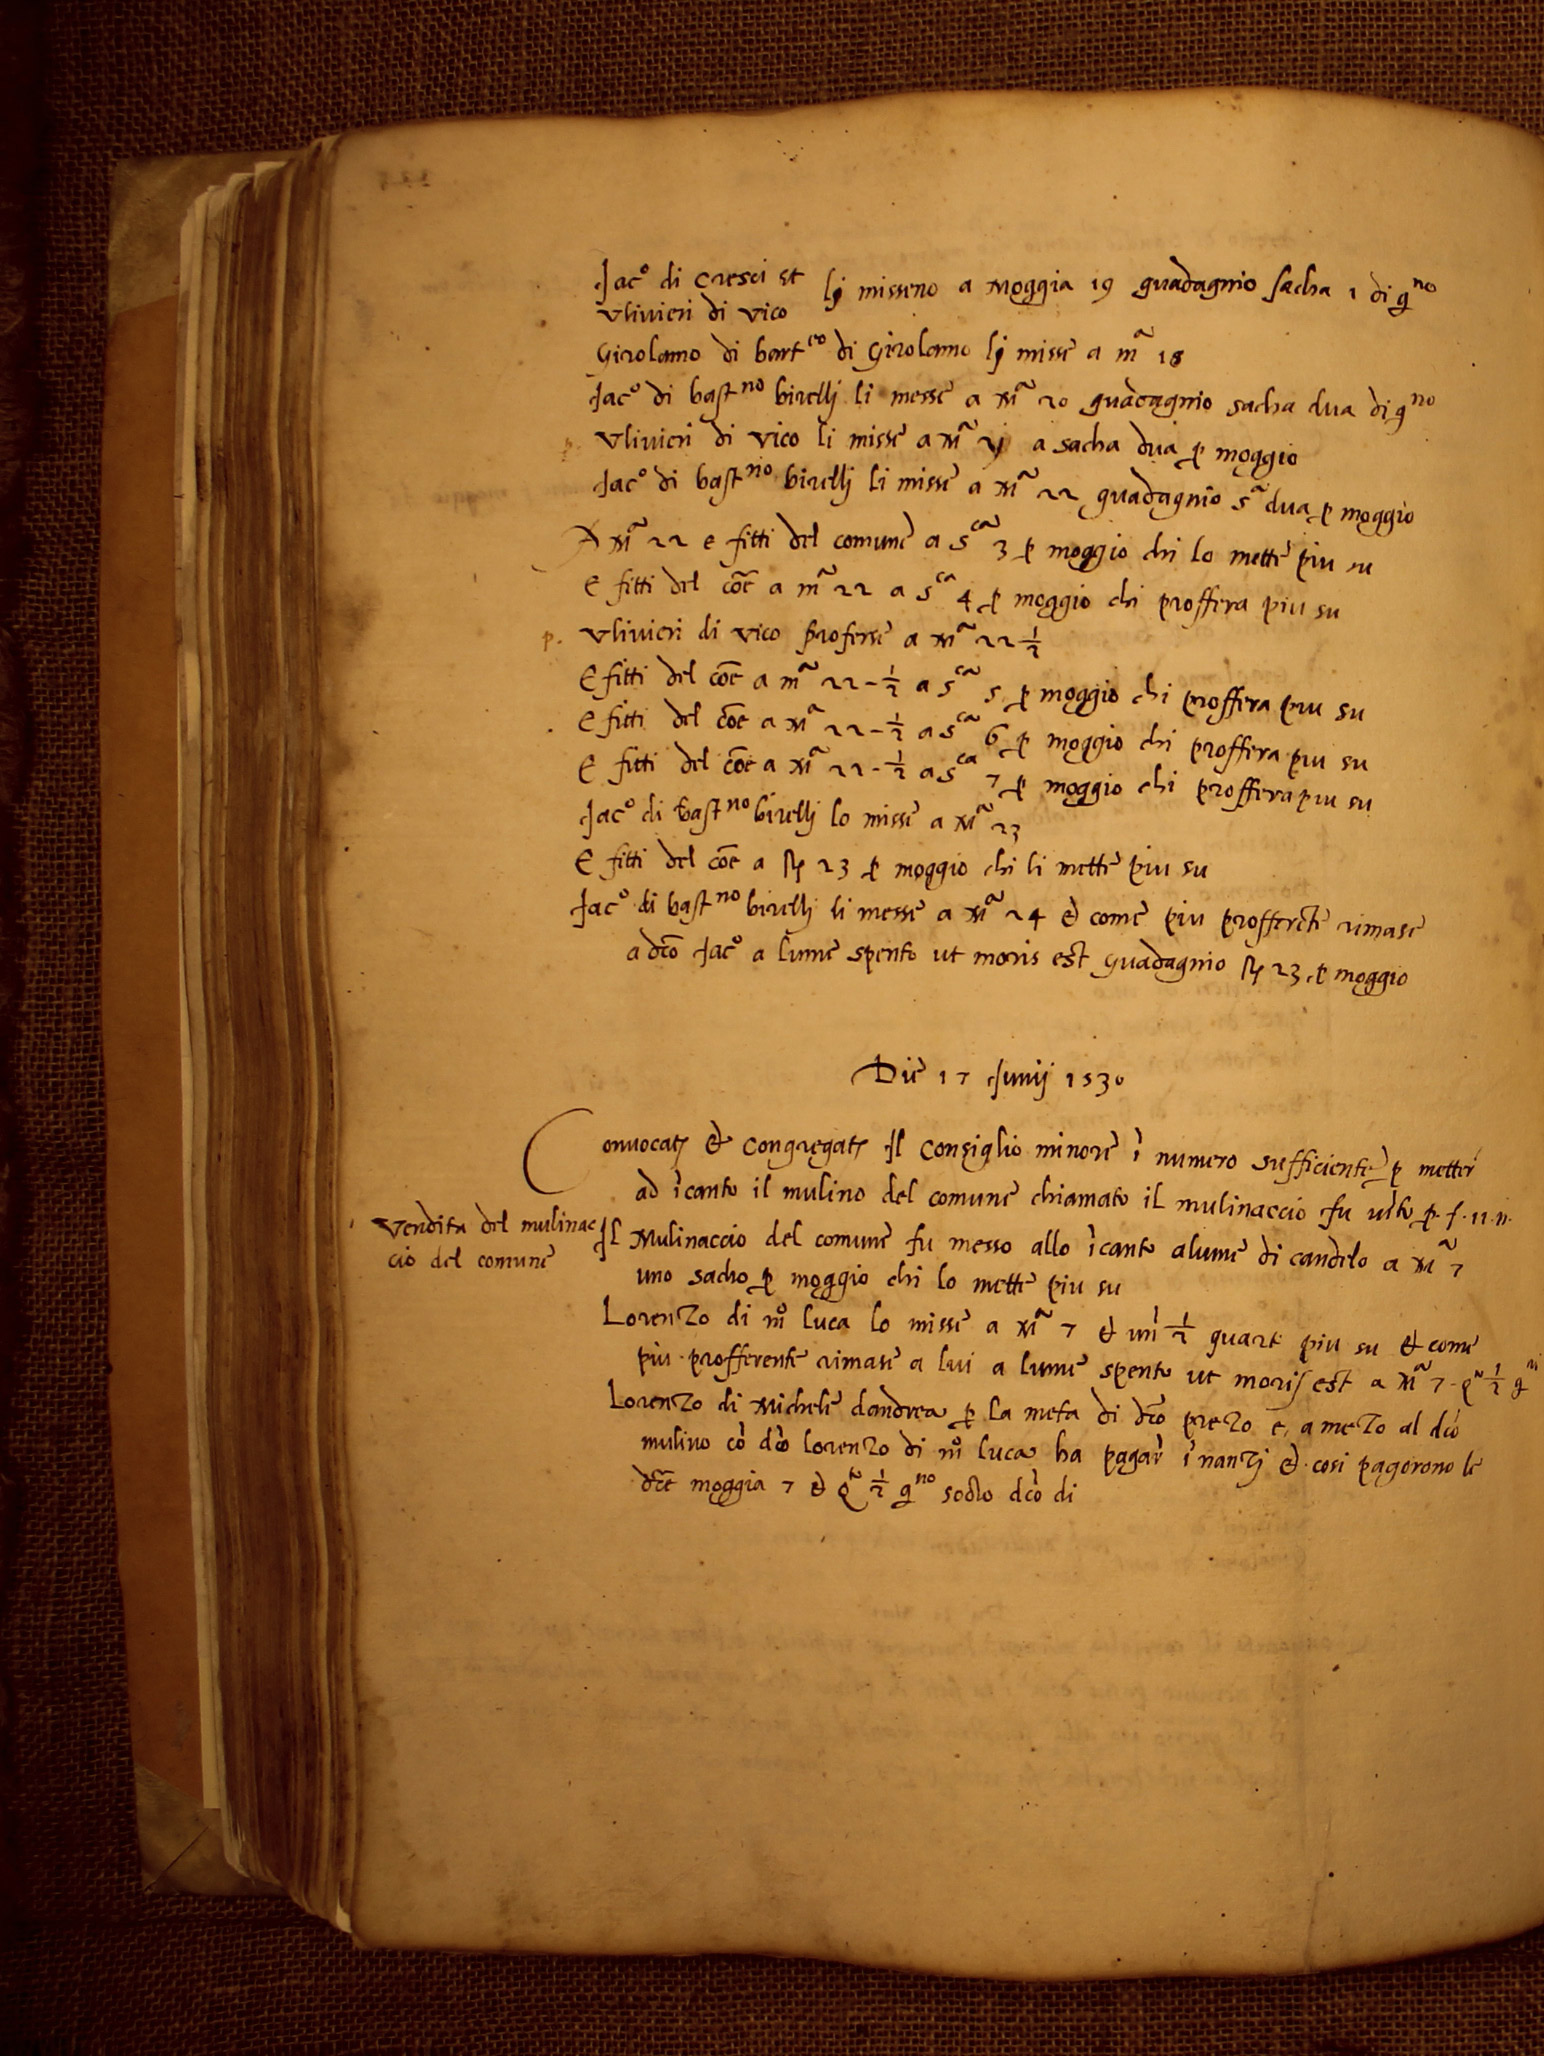 Jac° di Cresci et
Ulivieri di vico
lj misseno a Moggia 19 guadagnio sacha 1 di g^no
Girolamo di bart^eo di Girolamo lj misse a m^a 18
Jac° di bast^no birellj li messe a M^a 20 guadagnio sacha dua di g^no
Ulivieri di vico li misse a M^a a sacha dua ꝑ moggio
Jac° di bast^no birellj li misse a M^a 22 guadagnio s^a dua ꝑ moggio
A M^a 22 e fitti del comune a s^ca 3 ꝑ moggio chi lo mette piu su
E fitti del cōe a m^a 22 a s^ca 4 ꝑ moggio chi proffera piu su
p. Ulivieri di vico proferse a M^a 22 ½
E fitti del cōe a m^a 22 - ½ a s^ca 5 ꝑ moggio chi proffera piu su
E fitti del cōe a M^a 22 - ½ a s^ca 6 ꝑ moggio chi proffera piu su
E fitti del cōe a M^a 22 - ½ a s^ca 7 ꝑ moggio chi proffera piu su
Jac° di bast^no birellj lo misse a M^a 23
E fitti del cōe a 23 ꝑ moggio chi li mette piu su
Jac° di bast^no birellj li messe a M^a 24 & come piu profferēte rimase
a dc̄o Jac° a lume spento ut moris est guadagnio 23 ꝑ moggio
Die 17 Junij 1530
Convocatj & Congregatj Il Consiglio minore ī numero sufficiente ꝑ metter
ad īcanto il mulino del comune chiamato il mulinaccio fu ꝑ f. 11. n.
Vendita del mulinac
cio del comune
Il Mulinaccio del comune fu messo allo īcanto alume di candela a M^a 7
uno sacho ꝑ moggio chi lo mette piu su
Lorenzo di m° luca lo misse a M^a 7 & ½ quart piu su & come
piu profferente rimase a lui a lume spento ut moris est a M^a 7 q^a ½ g^ni
Lorenzo di Michele dandrea ꝑ la meta di dc̄o prezo e, a mezo al dc̄o
mulino cō dc̄o lorenzo di m° luca ha pagar īnanzj & cosi pagorono le
dc̄e moggia 7 & q^a ½ g^no socto dc̄o di